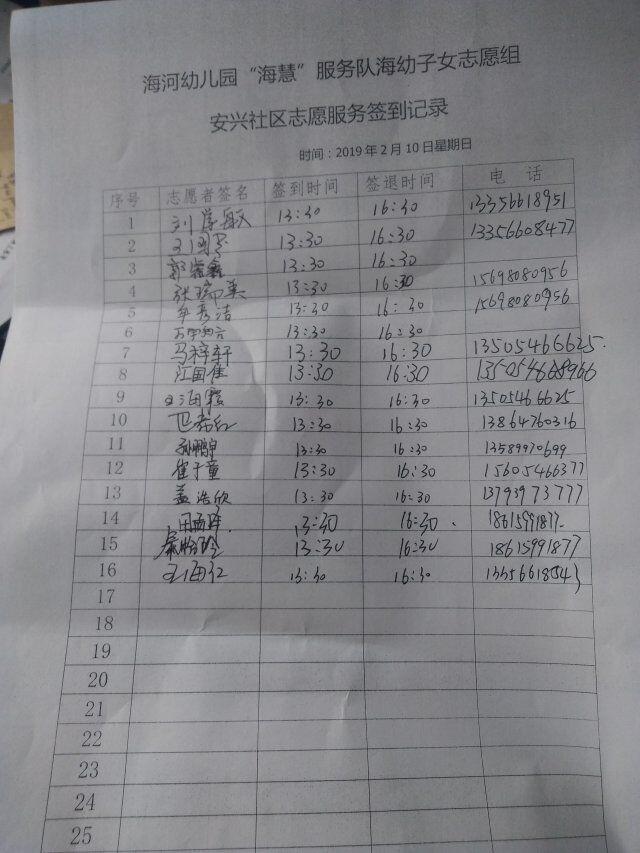 海河幼儿园“海慧”服务队海幼子女志愿组
安兴社区志愿服务签到记录
时间：2019年2月10日星期日
序号 志愿者签名 签到时间 签退时间 电 话
1 13:30 16:30 13356618951
2 13:30 16:30 13356608477
3 13:30 16:30
4 13:30 16:30 15698080956
5 13:30 16:30 15698080956
6 13:30 16:30
7 马梓轩 13:30 16:30 13505466625.
8 江国佳 13:30 16:30
9 王海霞 13:30 16:30 13505466625
10 13:30 16:30 13864760316
11 孙鹏皇 13:30 16:30 13589970699
12 崔子童 13:30 16:30 15605466377
13 盖浩欣 13:30 16:30 13793973777
14 13:30 16:30. 18615991877
15 13:30 16:30 18615991877
16 王海红 13:30 16:30
17
18
19
20
21
22
23
24
25